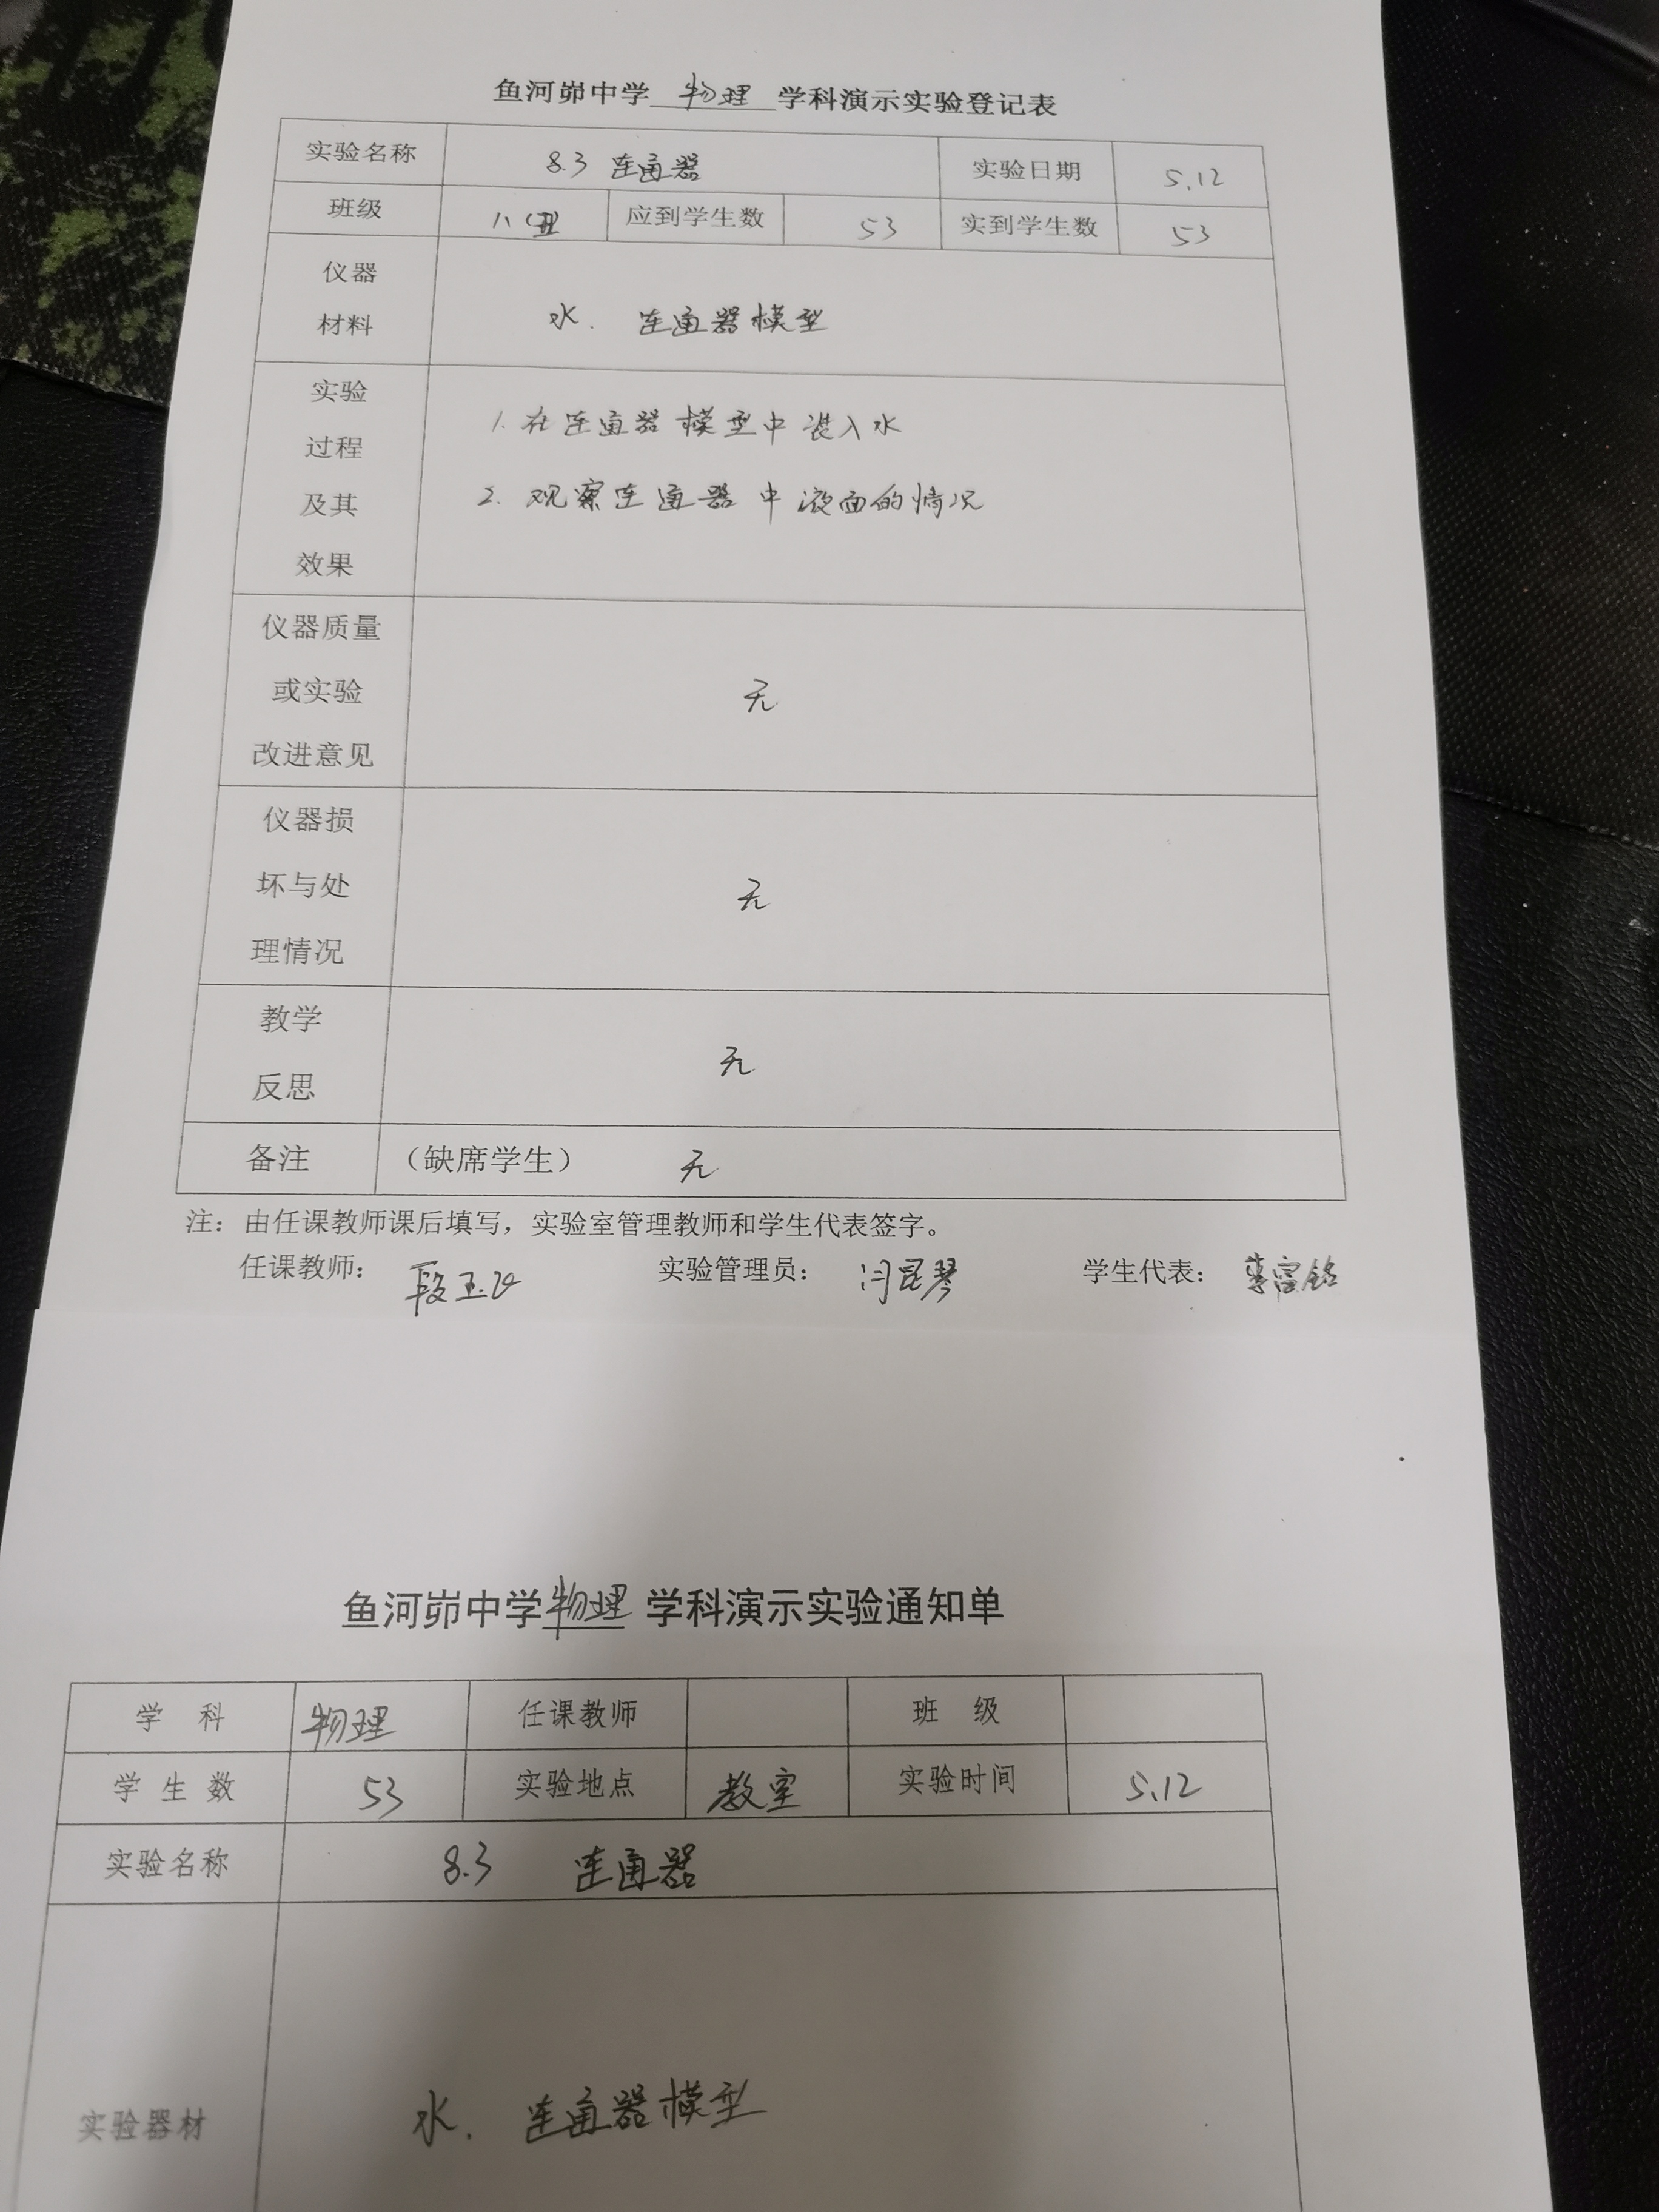 鱼河峁中学 物理 学科演示实验登记表
实验名称 8.3 连通器 实验日期 5.12
班级 应到学生数 53 实到学生数 53
仪器
材料
水. 连通器模型
实验
过程
及其
效果
1. 在连通器模型中装入水
2. 观察连通器中液面的情况
仪器质量
或实验
改进意见
无
仪器损
坏与处
理情况
无
教学
反思
无
备注 (缺席学生) 无
注：由任课教师课后填写，实验室管理教师和学生代表签字。
任课教师： 实验管理员： 闫昆琴 学生代表： 李富铭
鱼河峁中学物理 学科演示实验通知单
学 科 物理 任课教师 班 级
学 生 数 53 实验地点 教室 实验时间 5.12
实验名称 8.3 连通器
实验器材 水. 连通器模型